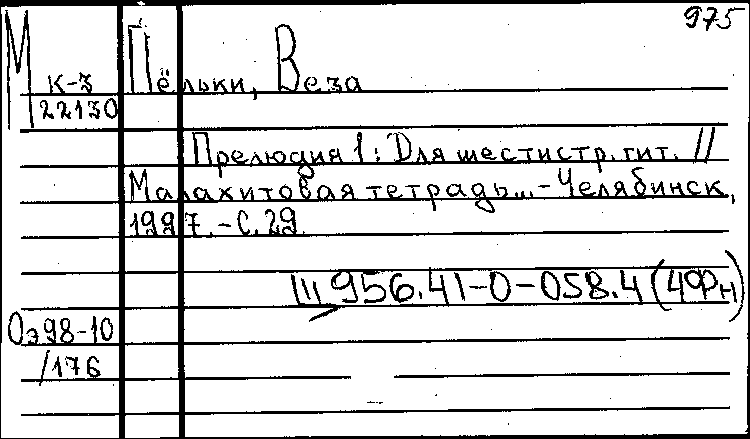 975
М К-3 Пёльки, Веза
22130
Прелюдия 1: Для шестистр. гит. //
Малахитовая тетрадь... - Челябинск,
1997. - С. 29.
Щ 956.41-0-058.4 (4Фн)
Оэ98-10
/176